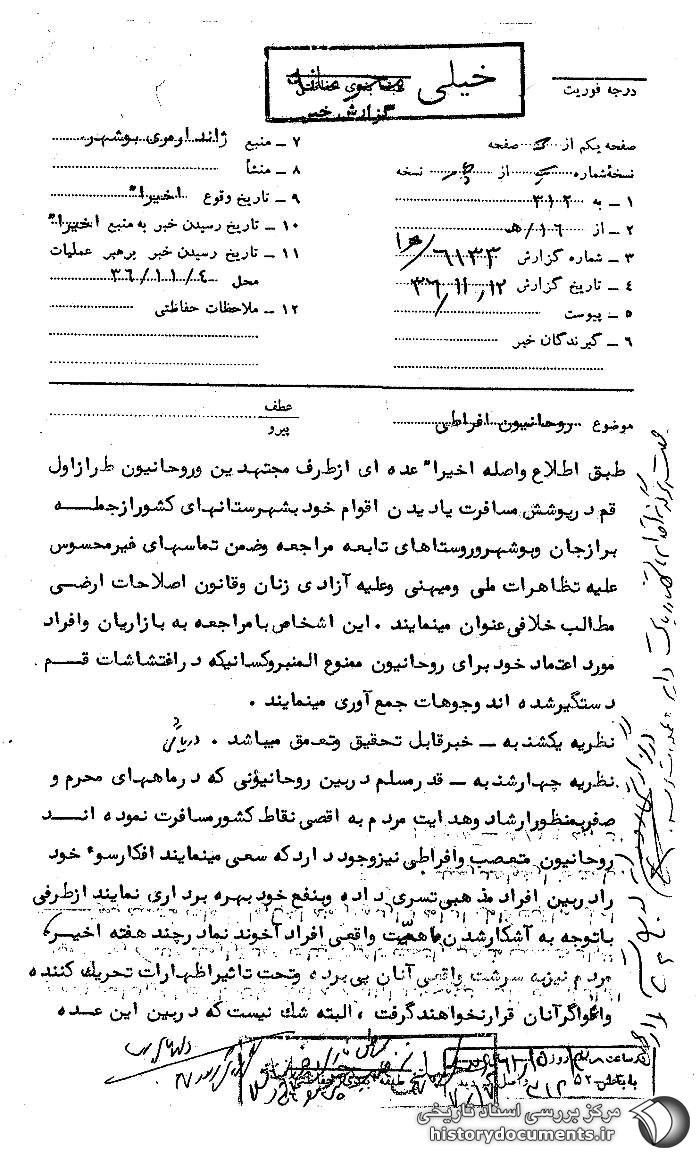 خیلی محرمانه
گزارش خبر
درجه فوریت
صفحه یکم از صفحه
نسخه شماره از نسخه
۱ - به ۳۱۲
۲ - از ۱۶/هـ
۳ - شماره گزارش ۶۱۳۳/هـ۱
۴ - تاریخ گزارش ۳۶/۱۱/۱۲
۵ - پیوست
۶ - گیرندگان خبر
۷ - منبع ژاندارمری بوشهر
۸ - منشأ
۹ - تاریخ وقوع اخیراً
۱۰ - تاریخ رسیدن خبر به منبع اخیراً
۱۱ - تاریخ رسیدن خبر برهبر عملیات
محل ۳۶/۱۱/۴
۱۲ - ملاحظات حفاظتی
موضوع روحانیون افراطی
عطف
پیرو
طبق اطلاع واصله اخیراً عده ای ازطرف مجتهدین وروحانیون طرازاول
قم درپوشش مسافرت یادیدن اقوام خود بشهرستانهای کشورازجمله
برازجان وبوشهروروستاهای تابعه مراجعه وضمن تماسهای غیرمحسوس
علیه تظاهرات ملی ومیهنی وعلیه آزادی زنان وقانون اصلاحات ارضی
مطالب خلافی عنوان مینمایند . این اشخاص بامراجعه به بازاریان وافراد
مورد اعتماد خود برای روحانیون ممنوع المنبروکسانیکه دراغتشاشات قم
دستگیرشده اند وجوهات جمع آوری مینمایند .
نظریه یکشنبه - خبرقابل تحقیق وتعمق میباشد . دریائی
نظریه چهارشنبه - قدرمسلم دربین روحانیؤنی که درماههای محرم و
صفربمنظورارشاد وهدایت مردم به اقصی نقاط کشورمسافرت نموده اند
روحانیون متعصب وافراطی نیزوجود داردکه سعی مینمایند افکارسوء خود
رادربین افراد مذهبی تسری داده وبنفع خود بهره برداری نمایند ازطرفی
باتوجه به آشکارشدن ماهیت واقعی افراد آخوند نمادرچند هفته اخیر،
مردم نیزبه سرشت واقعی آنان پی برده وتحت تاثیراظهارات تحریک کننده
واغواگرآنان قرارنخواهندگرفت ، البته شک نیست که دربین این عده
مرکز بررسی اسناد تاریخی
historydocuments.ir